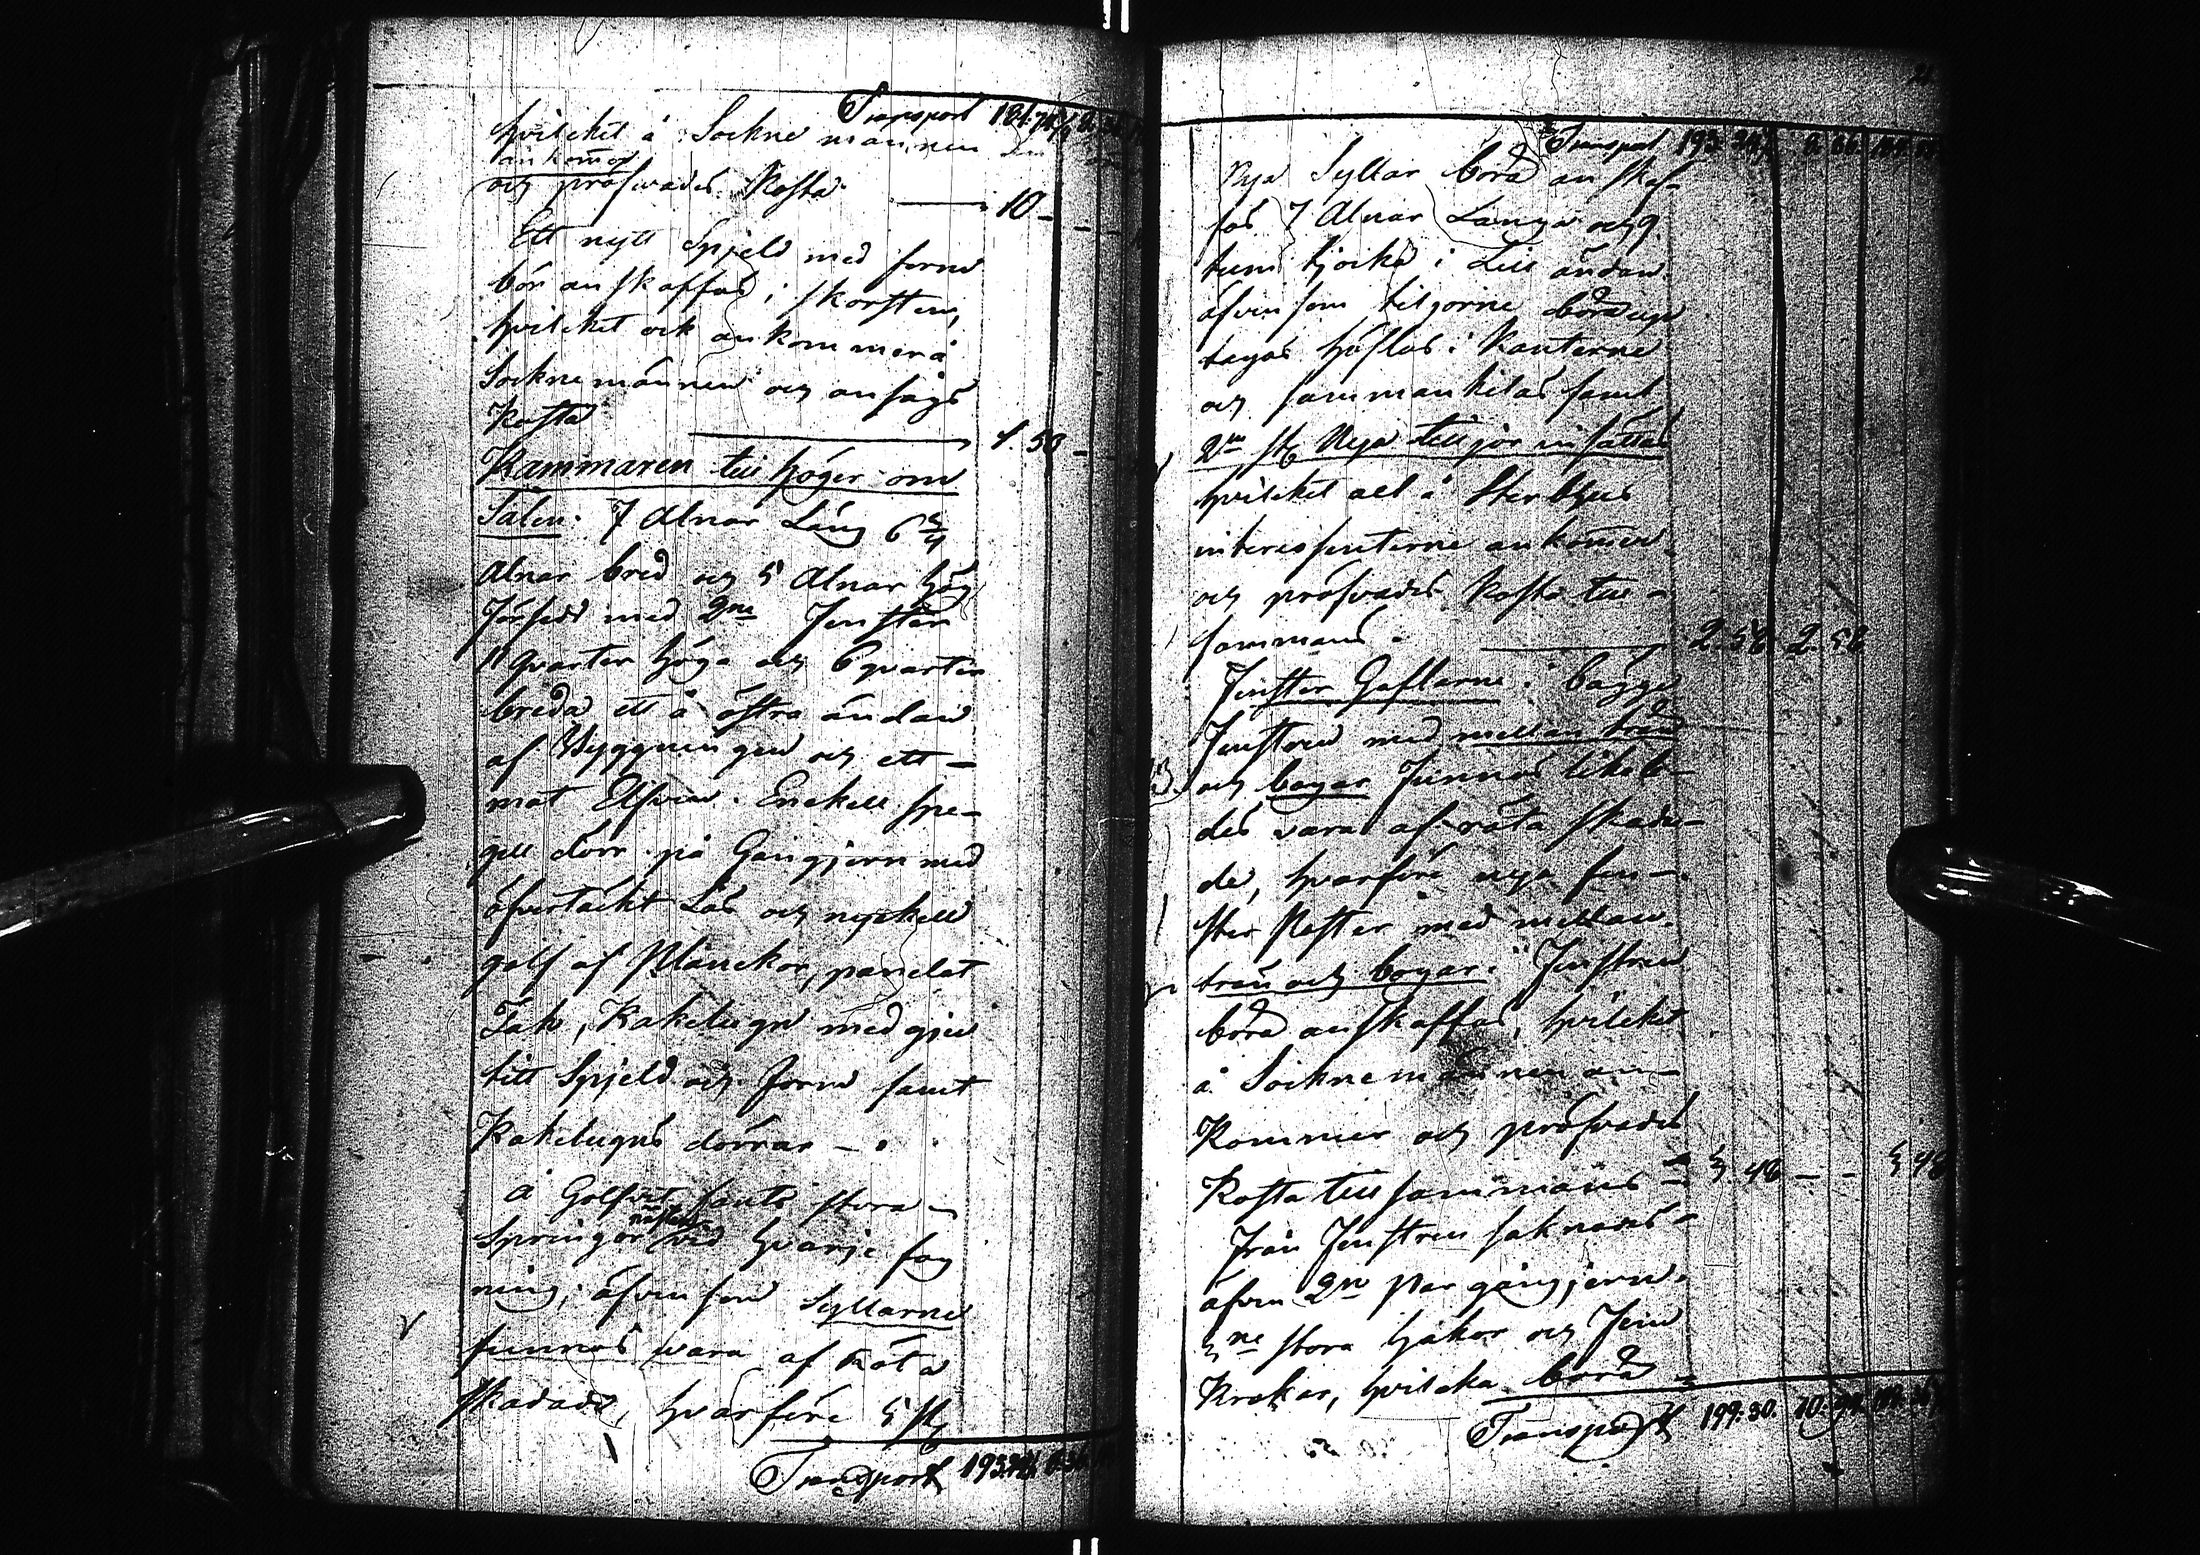 Transport 181.74½
hvilcket å Sockne männen
ankom̄er
och pröfvades Kosta 10 -
Ett nytt Spjeld med form
bör anskaffas i skorsten,
hvilcket ock ankommer å
Sockne männen och ansågs
Kosta 1.50
Kammaren till höger om
Salen. 7 Alnar Lång 6 3/4
Alnar bred och 5 Alnar hög
Försedd med 2ne Fenster
11 qvarter höga och 6 qvarter
breda ett å östra ändan
af Byggningen och ett
mot Elfven. Enckell spe-
gell dörr på Gångjern med
öfvertäckt Lås och nyckell
golf af Planckor, panelat
Tak, Kakelugn med gju
titt Spjeld och form samt
Kakelugns dörrar -
å Golfvet fants stora
Springor nästan vid hvarje fog
ning, äfven som Syllarne
funnos vara af röta
skadade, hvarföre 5 st
Transport 193.24½
Transport 193.24½
Nya Syllar böra anskaf-
fas 7 Alnar Långa och 9
tum tjocka i Lill ändan
äfven som tiljorne böra upp
tagas hyflas i Kanterne
och sammankilas samt
2ne st Nya tilljor insättas
hvilcket allt å Sterbhus
interessenterne ankom̄er
och pröfvades Kosta till-
sammans 2.58 2.58
Fenster Gaflarne i bägge
Fenstren med mellan träd
och bogar funnos likale-
des vara af röta skada-
de, hvarföre nya fen-
ster Poster med mellan
trän och bogar i Fenstren
böra anskaffas, hvilcket
å Socknemännen an-
kommer och pröfvades
Kosta tillsammans 3.48 - - 3.48
från Fenstren saknades
äfven 2ne Par gångjern
3ne stora hakor och Fem
Krokar, hvilcka böra
Transport 199.30.